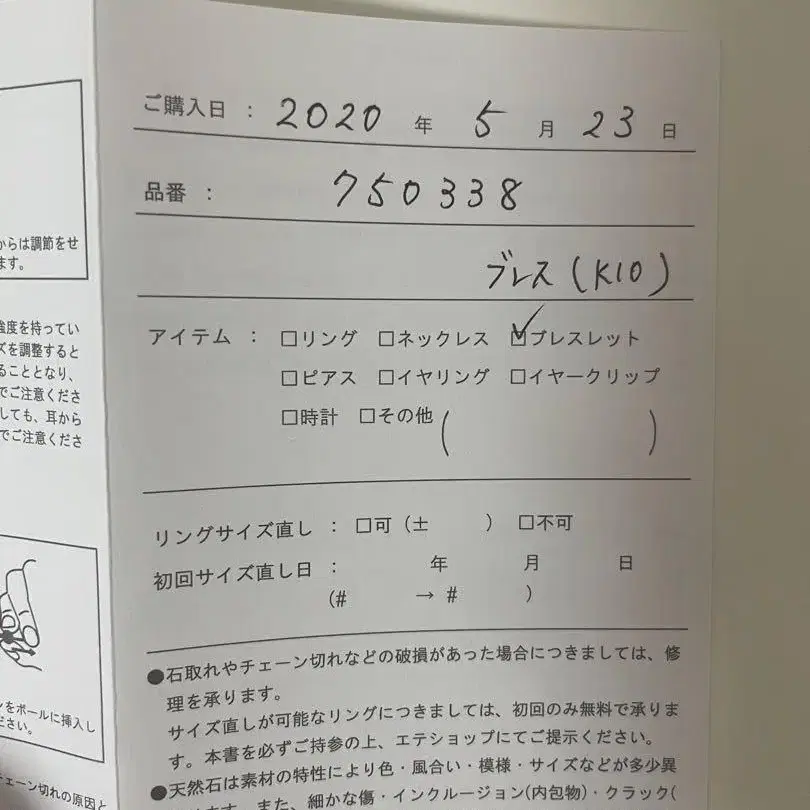 ご購入日 : 2020 年 5 月 23 日
品番 : 750338
ブレス(K10)
アイテム : □リング □ネックレス ☑ブレスレット
□ピアス □イヤリング □イヤークリップ
□時計 □その他 ( )
リングサイズ直し : □可 (± ) □不可
初回サイズ直し日 : 年 月 日
(# → # )
●石取れやチェーン切れなどの破損があった場合につきましては、修
理を承ります。
サイズ直しが可能なリングにつきましては、初回のみ無料で承りま
す。本書を必ずご持参の上、エテショップにてご提示ください。
●天然石は素材の特性により色・風合い・模様・サイズなどが多少異
ます。また、細かな傷・インクルージョン(内包物)・クラック(
からは調節をせ
ます。
強度を持ってい
ズを調整すると
ることとなり、
でご注意くださ
しても、耳から
でご注意くださ
ンをポールに挿入し
ださい。
チェーン切れの原因と